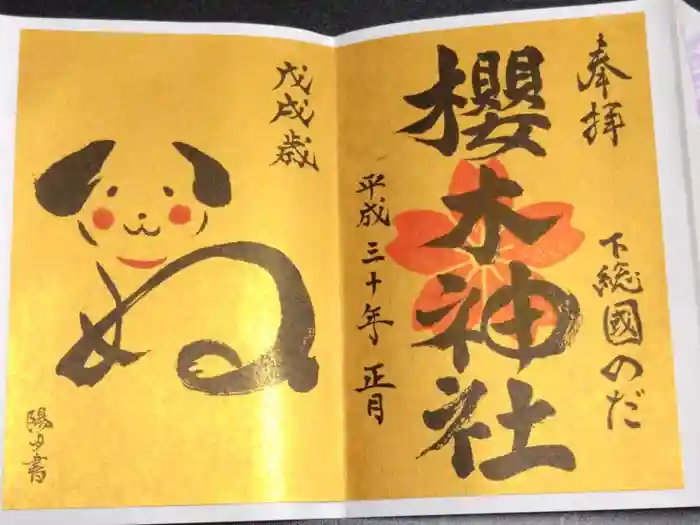 奉拝
下総國のだ
櫻木神社
平成三十年 正月
戊戌歳
ぬ
書